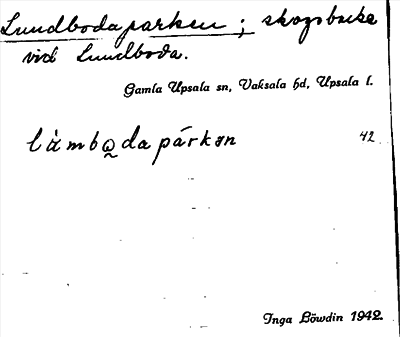 Lundbodaparken; skogsbacke
vid Lundboda.
Gamla Upsala sn, Vaksala hd, Upsala l.
lȧ̀mbω̰dapárkən 42
Inga Löwdin 1942.